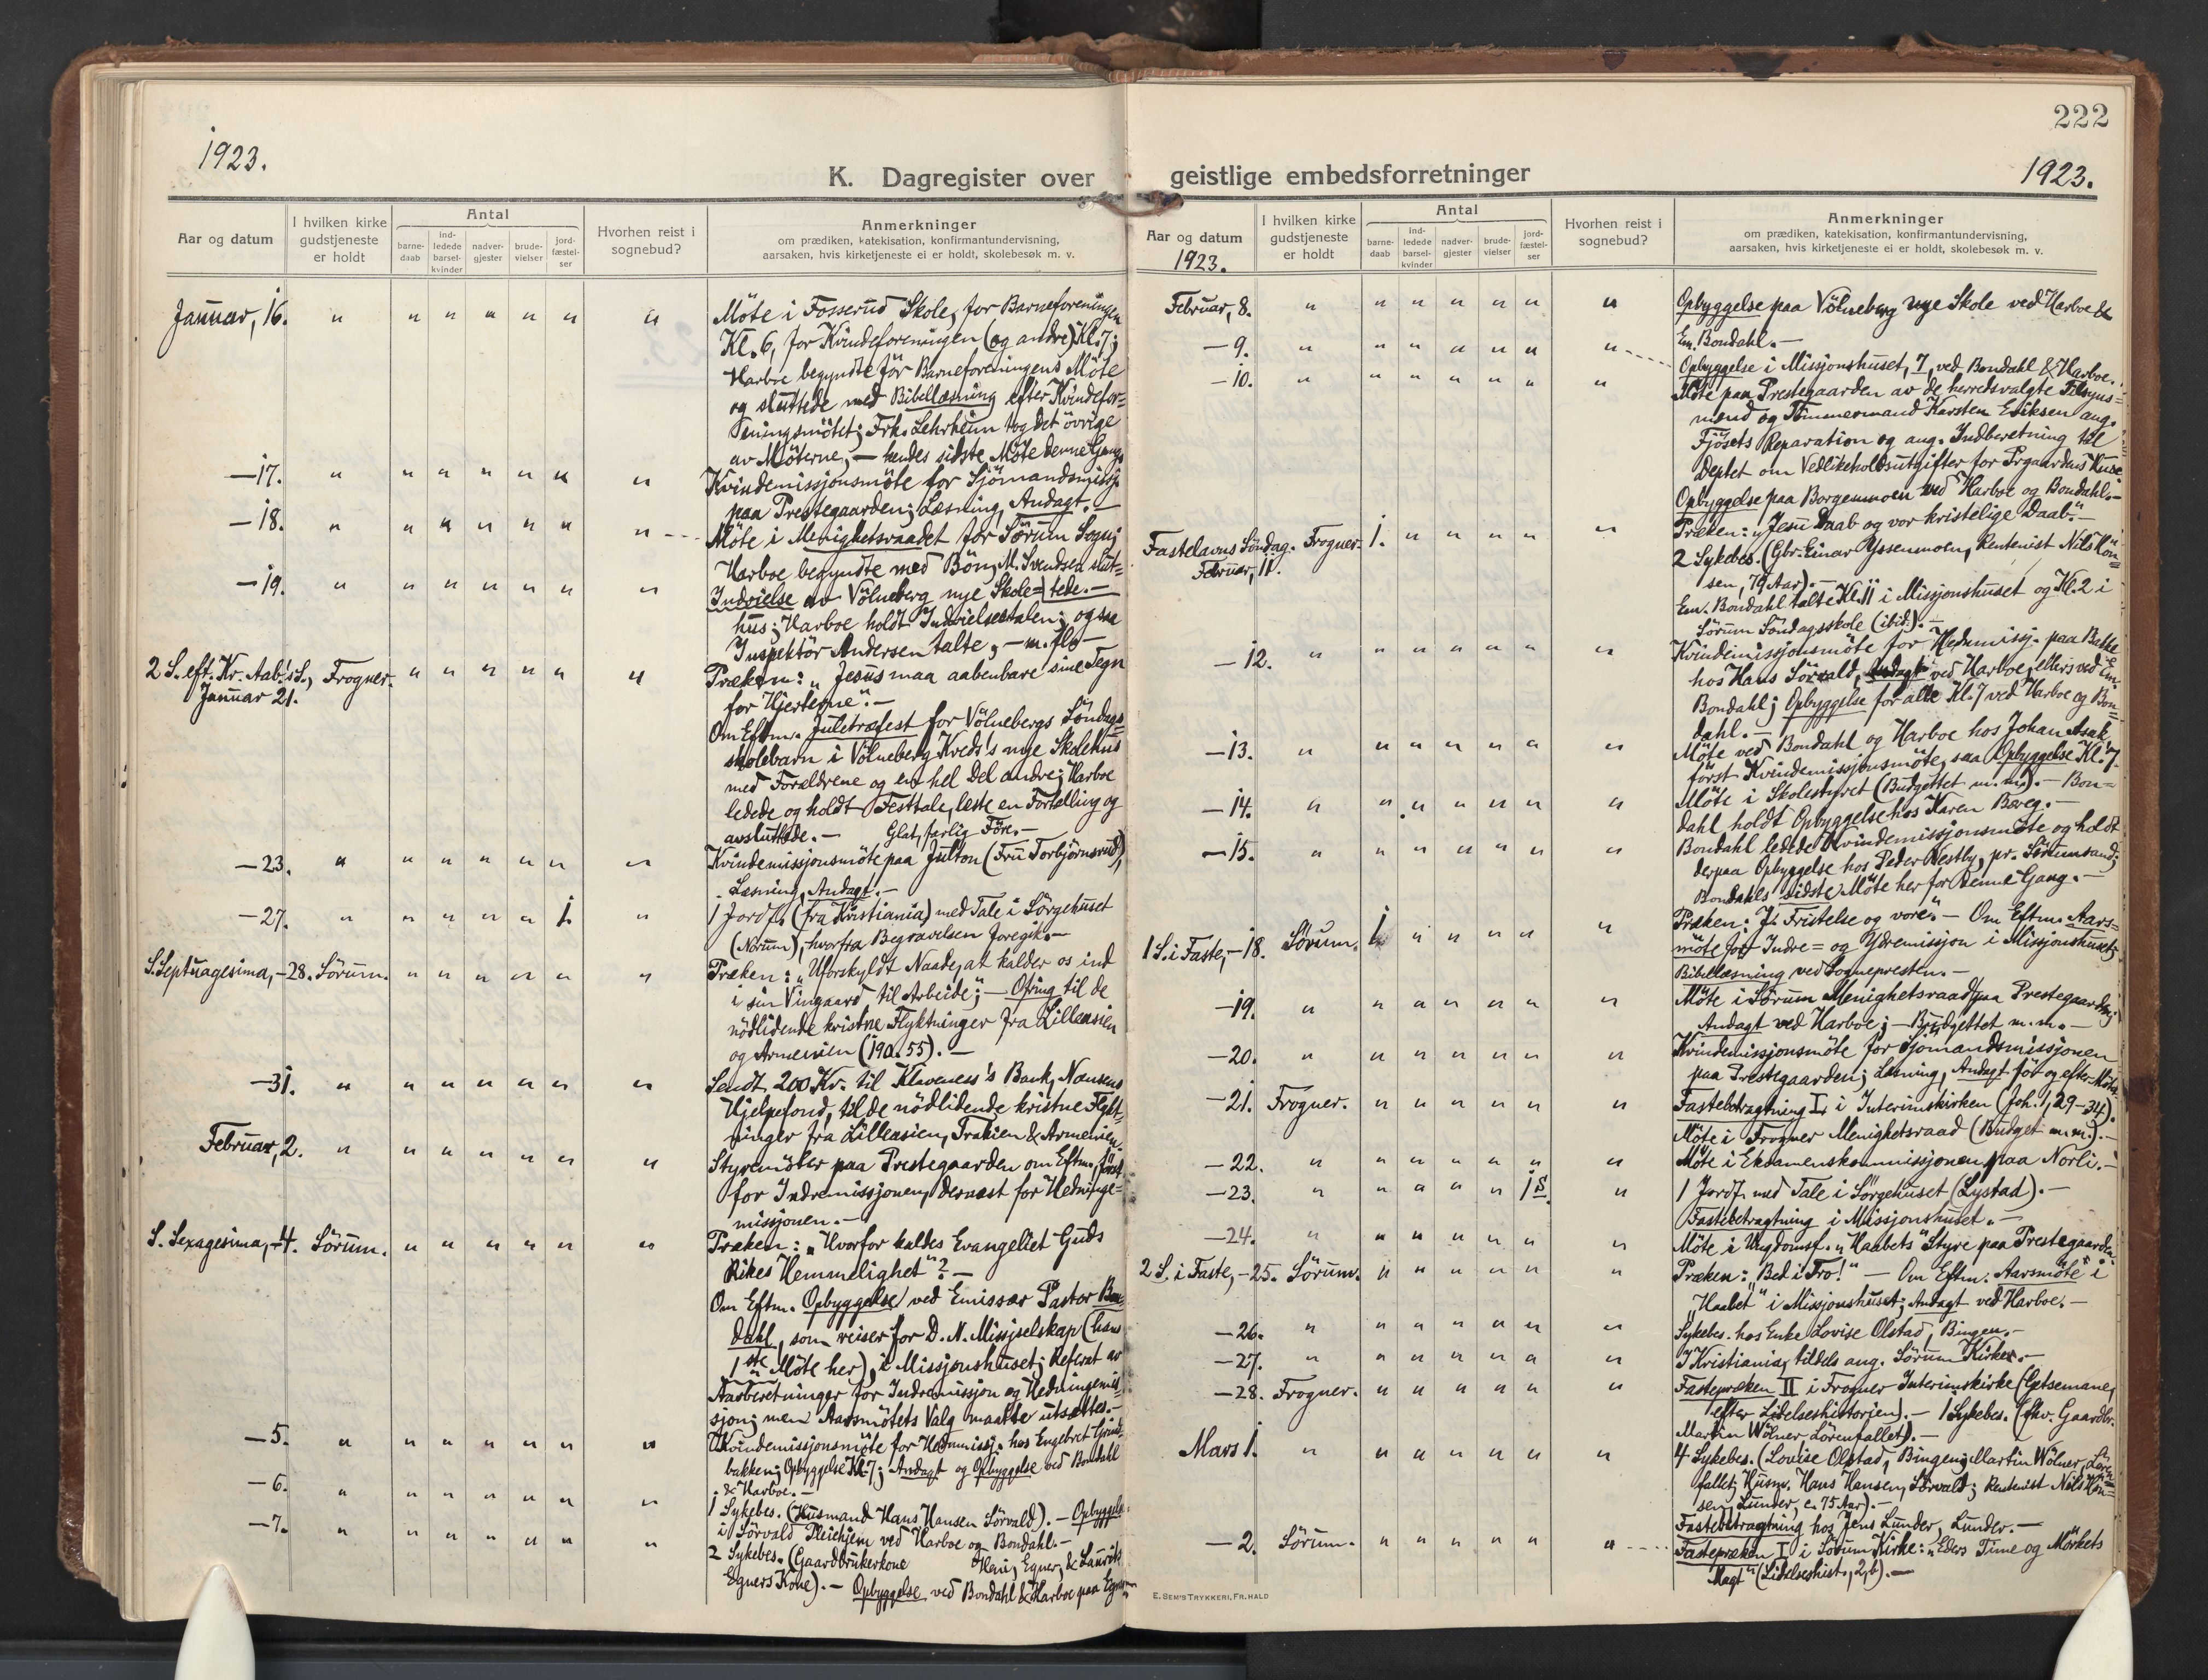 222
1923.
1923.
K. Dagregister over geistlige embedsforretninger
Aar og datum
I hvilken kirke gudstjeneste er holdt
Antal
barne-daab
ind-ledede barsel-kvinder
nadver-gjester
brude-vielser
jord-fæstel-ser
Hvorhen reist i sognebud?
Anmerkninger
om prædiken, katekisation, konfirmantundervisning,
aarsaken, hvis kirketjeneste ei er holdt, skolebesøk m. v.
Januar, 16. " " " " " " " Möte i Fosserud Skole, for Barneforeningen
Kl. 6, for Kvindeforeningen (og andre) Kl. 7;
Harboe begyndte för Barneforeningens Möte
og sluttede med Bibellæsning efter Kvindefor=
eningsmötet; Frk. Lehrheim tog det övrige
av Möterne, — hendes sidste Möte denne Gang.
—17. " " " " " " " Kvindemissjonsmöte for Sjömandsmissj.
paa Prestegaarden; Læsning, Andagt. —
—18. " " " " " " " Möte i Menighetsraadet for Sörum Sogn;
Harboe begyndte med Bön, M. Svendsen slut=
tede. —
—19. " " " " " " " Indvielse av Völneberg nye Skole=
hus; Harboe holdt Indvielsestalen; ogsaa
Inspektör Andersen talte, — m. fl. —
2 S. eft. Kr. Aab.'s S., Januar 21. Frogner. " " " " " " Præken: „Jesus maa aabenbare sine Tegn
for Hjerterne". —
Om Eftm. Juletræfest for Völnebergs Söndags=
skolebarn i Völneberg Kreds's nye Skolehus
med Forældrene og en hel Del andre; Harboe
ledede og holdt Festtale, læste en Fortelling og
avsluttede. — Glat, farlig Före. —
—23. " " " " " " " Kvindemissjonsmöte paa Julton (Fru Torbjörnsrud),
Læsning, Andagt. —
—27. " " " " " 1. " 1 Jordf. (fra Kristiania) med Tale i Sörgehuset
(Norum), hvorfra Begravelsen foregik. —
S. Septuagesima, —28. Sörum. " " " " " " Præken: „Uforskyldt Naade, at kalder os ind
i sin Vingaard til Arbeide"; — Ofring til de
nödlidende kristne Flyktninger fra Lilleasien
og Armenien (190.55). —
—31. " " " " " " " Sendt 200 Kr. til Klaveness's Bank, Nansens
Hjelpefond, til de nödlidende kristne Flykt=
ninger fra Lilleasien, Trakien & Armenien.
Februar, 2. " " " " " " " Styremöter paa Prestegaarden om Eftm., först
for Indremissjonen, dernæst for Hedninge=
missjonen. —
S. Sexagesima, —4. Sörum. " " " " " " Præken: „Hvorfor kaldes Evangeliet Guds
Rikes Hemmelighet"? —
Om Eftm. Opbyggelse ved Emissær Pastor Bon=
dahl, som reiser for D. N. Missjselskap (hans
1ste Möte her), i Missjonshuset; Referat av
Aarsberetninger for Indremissjon og Hedningemis=
sjon; men Aarsmötets Valg maatte utsættes. —
—5. " " " " " " " Kvindemissjonsmöte for Hedmissj. hos Engebret
bakken; Opbyggelse Kl. 7; Andagt og Opbyggelse ved Bondahl
& Harboe. —
—6. " " " " " " " 1 Sykebes. (Husmand Hans Hansen Sörvald). — Opbyggelse
i Sörvald Pleiehjem ved Harboe og Bondahl. —
—7. " " " " " " " 2 Sykebes. (Gaardbrukerkone Heni, Egner, & Laurits
Egners Kone). — Opbyggelse ved Bondahl & Harboe paa Egner
Aar og datum
1923.
I hvilken kirke gudstjeneste er holdt
Antal
barne-daab
ind-ledede barsel-kvinder
nadver-gjester
brude-vielser
jord-fæstel-ser
Hvorhen reist i sognebud?
Anmerkninger
om prædiken, katekisation, konfirmantundervisning,
aarsaken, hvis kirketjeneste ei er holdt, skolebesøk m. v.
Februar, 8. " " " " " " " Opbyggelse paa Völneberg nye Skole ved Harboe &
Em. Bondahl. —
—9. " " " " " " " Opbyggelse i Missjonshuset, 7, ved Bondahl & Harboe. .
—10. " " " " " " " Möte paa Prestegaarden av de herredsvalgte Tilsyns=
mænd og Tömmermand Karsten Eriksen ang.
Fjösets Reparation og ang. Indberetning til
Deptet om Vedlikeholdsutgifter for Prgaardens Huse
Opbyggelse paa Borgenmoen ved Harboe og Bondahl. —
Fastelavns Söndag. Februar, 11. Frogner. 1. " " " " " Præken: „Jesu Daab og vor kristelige Daab". —
2 Sykebes. (Gbr. Einar Yssenmoen, Rentenist Nils Hön=
sen, 79 Aar). —
Em. Bondahl talte Kl. 11 i Missjonshuset og Kl. 2 i
Sörum Söndagsskole (ibid.). —
—12. " " " " " " " Kvindemissjonsmöte for Hedmissj. paa Bakke
hos Hans Sörvald, Andagt ved Harboe, ellers ved Em.
Bondahl; Opbyggelse for alle Kl. 7 ved Harboe og Bon=
dahl. —
—13. " " " " " " " Möte ved Bondahl og Harboe hos Johan Asak,
först Kvindemissjonsmöte, saa Opbyggelse Kl. 7.
—14. " " " " " " " Möte i Skolestyret (Budgettet m. m.). — Bon=
dahl holdt Opbyggelse hos Karen Bereg. —
—15. " " " " " " " Bondahl ledede Kvindemissjonsmöte og holdt
derpaa Opbyggelse hos Peder Vestby, pr. Sörumsand;
Bondahls sidste Möte her for denne Gang. —
1 S. i Faste, —18. Sörum. 1. " " " " " Præken: J. Fristelse og vore". — Om Eftm. Aars=
möte for Indre= og Ydremissjon i Missjonshuset;
Bibellæsning ved Sognepresten. —
—19. " " " " " " " Möte i Sörum Menighetsraad paa Prestegaarden;
Andagt ved Harboe; — Budgettet m. m. —
—20. " " " " " " " Kvindemissjonsmöte for Sjömandsmissjonen
paa Prestegaarden; Læsning, Andagt för og efter Mötet.
—21. Frogner. " " " " " " Fastebetragtning I i Interimskirken (Joh. 1, 29-34).
Möte i Frogner Menighetsraad (Budget m. m.). —
—22. " " " " " " " Möte i Eksamenskommissjonen paa Norli. —
—23. " " " " " 1 S. " 1 Jordf. med Tale i Sörgehuset (Lystad). —
Fastebetragtning i Missjonshuset. —
—24. " " " " " " " Möte i Ungdomsf. „Haabets" Styre paa Prestegaarden.
2 S. i Faste, —25. Sörum. " " " " " " Præken: „Bed i Tro!" — Om Eftm. Aarsmöte i
„Haabet" i Missjonshuset; Andagt ved Harboe. —
—26. " " " " " " " Sykebes. hos Enke Lovise Olstad, Bingen. —
—27. " " " " " " " I Kristiania, tildels ang. Sörum Kirke. —
—28. Frogner. " " " " " " Fastepræken II i Frogner Interimskirke (Getsemane,
efter Lidelseshistorjen). — 1 Sykebes. (fhv. Gaardbr.
Martin Wölner Lörenfallet). —
Mars 1. " " " " " " " 4 Sykebes. (Lovise Olstad, Bingen; Martin Wölner, Lören=
fallet; Husm. Hans Hansen, Sörvald; Rentenist Nils Hön=
sen, Lunder, c. 75 Aar). —
Fastebetragtning hos Jens Lunder, Lunder. —
—2. Sörum. " " " " " " Fastepræken I i Sörum Kirke: „Eders Time og Mörkets
Magt" (Lidelseshist., 2, b). —
E. SEM'S TRYKKERI, FR. HALD